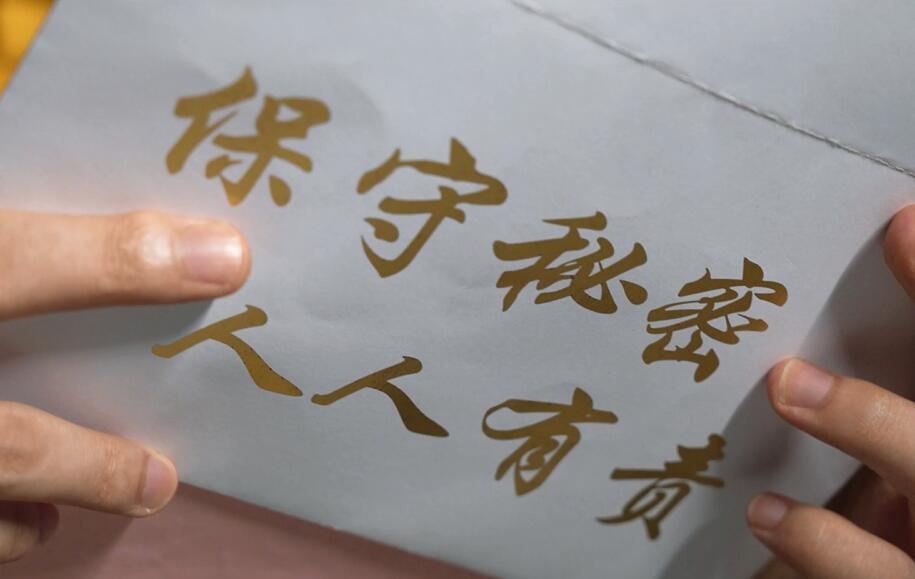 保守秘密
人人有责